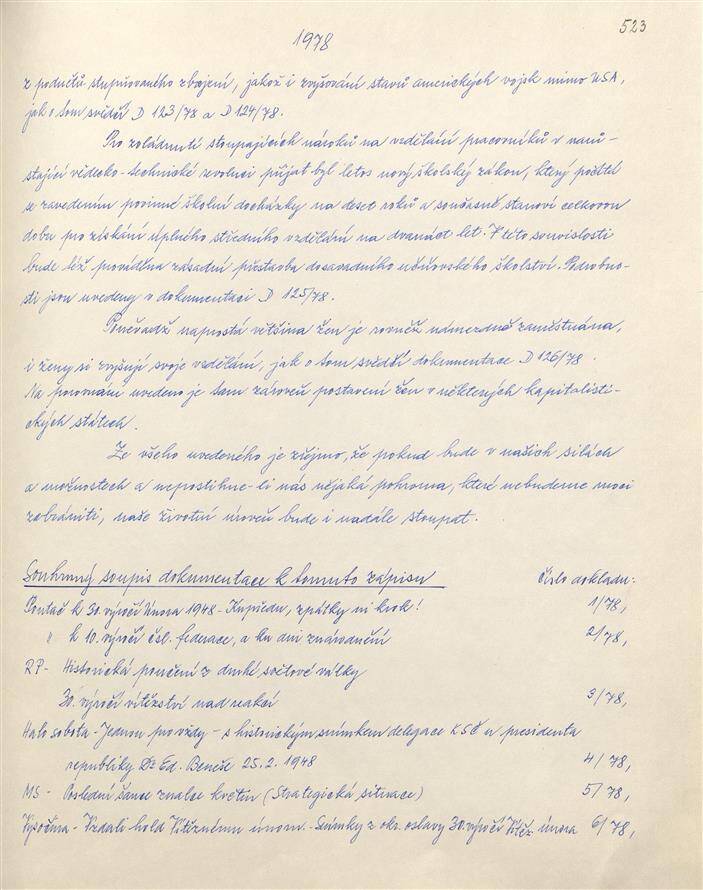 523
1978
z podnětů stupňovaného zbrojení, jakož i zvyšování stavů amerických vojsk mimo USA,
jak o tom svědčí D 123/78 a D 124/78.
Pro zvládnutí stoupajících nároků na vzdělání pracovníků v nasu-
stající vědecko-technické revoluci přijat byl letos nový školský zákon, který počítá
se zavedením povinné školní docházky na deset roků a současně stanoví celkovou
dobu pro získání úplného středního vzdělání na dvanáct let. V této souvislosti
bude též prováděna zásadní přestavba dosavadního učňovského školství. Podrobno-
sti jsou uvedeny v dokumentaci D 125/78.
Poněvadž naprostá většina žen je rovněž námezdně zaměstnána,
i ženy si zvyšují svoje vzdělání, jak o tom svědčí dokumentace D 126/78.
Na porovnání uvedeno je tam zároveň postavení žen v některých kapitalisti-
ckých státech.
Ze všeho uvedeného je zřejmo, že pokud bude v našich silách
a možnostech a nepostihne-li nás nějaká pohroma, které nebudeme moci
zabrániti, naše životní úroveň bude i nadále stoupat.
Souhrnný soupis dokumentace k tomuto zápisu Číslo dokladu:
Poutač k 30. výročí Února 1948 - Kupředu, zpátky ni krok! 1/78,
" k 10. výročí čsl. federace, a ku dni znárodnění 2/78,
RP - Historická poučení z druhé světové války
30. výročí vítězství nad reakcí 3/78,
Halo sobota - Jednou pro vždy - s historickým snímkem delegace KSČ u presidenta
republiky Dr Ed. Beneše 25.2.1948 4/78,
MS - Poslední šance znalce květin (Strategická situace) 5/78,
Vysočina - Vzdali hold Vítěznému únoru. - Snímky z okr. oslavy 30. výročí Vítěz. února 6/78,